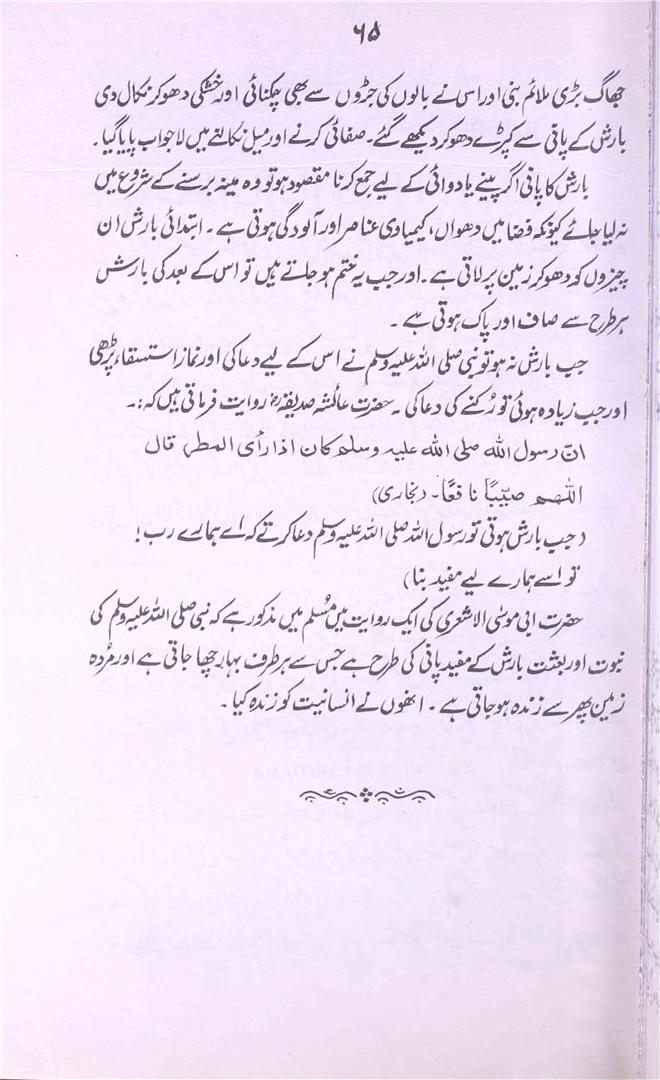 ۶۵
جھاگ بڑی ملائم بنی اور اس نے بالوں کی جڑوں سے بھی چکنائی اور خشکی دھو کر نکال دی
بارش کے پانی سے کپڑے دھو کر دیکھے گئے۔ صفائی کرنے اور میل نکالنے میں لاجواب پایا گیا۔
بارش کا پانی اگر پینے یا دوائی کے لیے جمع کرنا مقصود ہو تو وہ مینہ برسنے کے شروع میں
نہ لیا جائے کیونکہ فضا میں دھواں، کیمیاوی عناصر اور آلودگی ہوتی ہے۔ ابتدائی بارش ان
چیزوں کو دھو کر زمین پر لاتی ہے۔ اور جب یہ ختم ہو جاتے ہیں تو اس کے بعد کی بارش
ہر طرح سے صاف اور پاک ہوتی ہے۔
جب بارش نہ ہو تو نبی صلی اللہ علیہ وسلم نے اس کے لیے دعا کی اور نماز استسقاء پڑھی
اور جب زیادہ ہوئی تو رُکنے کی دعا کی۔ حضرت عائشہ صدیقہؓ روایت فرماتی ہیں کہ:۔
انّ رسول اللہ صلی اللہ علیہ وسلم کان اذا رأی المطر، قال
اللھم صیّبًا نافعًا۔ (بخاری)
(جب بارش ہوتی تو رسول اللہ صلی اللہ علیہ وسلم دعا کرتے کہ اے ہمارے رب!
تو اسے ہمارے لیے مفید بنا)
حضرت ابی موسیٰ الاشعری کی ایک روایت میں مُسلم میں مذکور ہے کہ نبی صلی اللہ علیہ وسلم کی
نبوت اور بعثت بارش کے مفید پانی کی طرح ہے جس سے ہر طرف بہار چھا جاتی ہے اور مُردہ
زمین پھر سے زندہ ہو جاتی ہے۔ انھوں نے انسانیت کو زندہ کیا۔